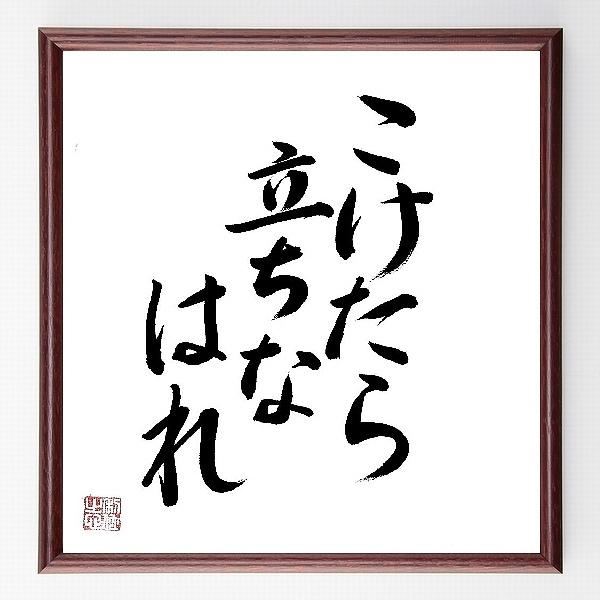 こけたら
立ちな
はれ